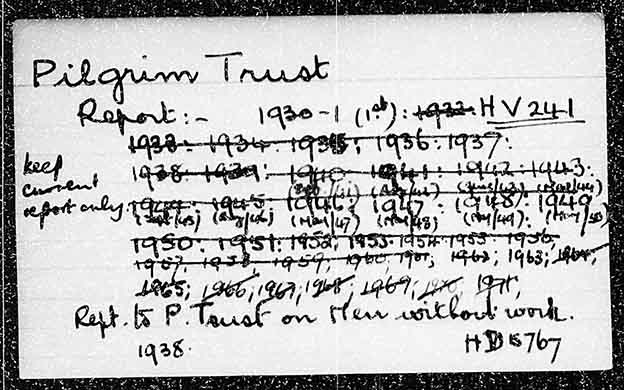 Pilgrim Trust
Report:- 1930-1 (1st): 1932: HV 241
1933: 1934: 1935; 1936: 1937:
keep current report only.
1938: 1939: 1940 1941: 1942: 1943:
(/41) (/42) (/43) (/44)
1944: 1945 1946: 1947: 1948: 1949
(/45) (/46) (Mar/47) (/48) (/49): (/50)
1950: 1951: 1952, 1953: 1954: 1955: 1956,
1957, 1958 1959, 1960, 1961; 1962; 1963; 1964;
1965; 1966; 1967; 1968; 1969; 1970; 1971;
Rept. to P. Trust on Men without work.
1938. HD 5767